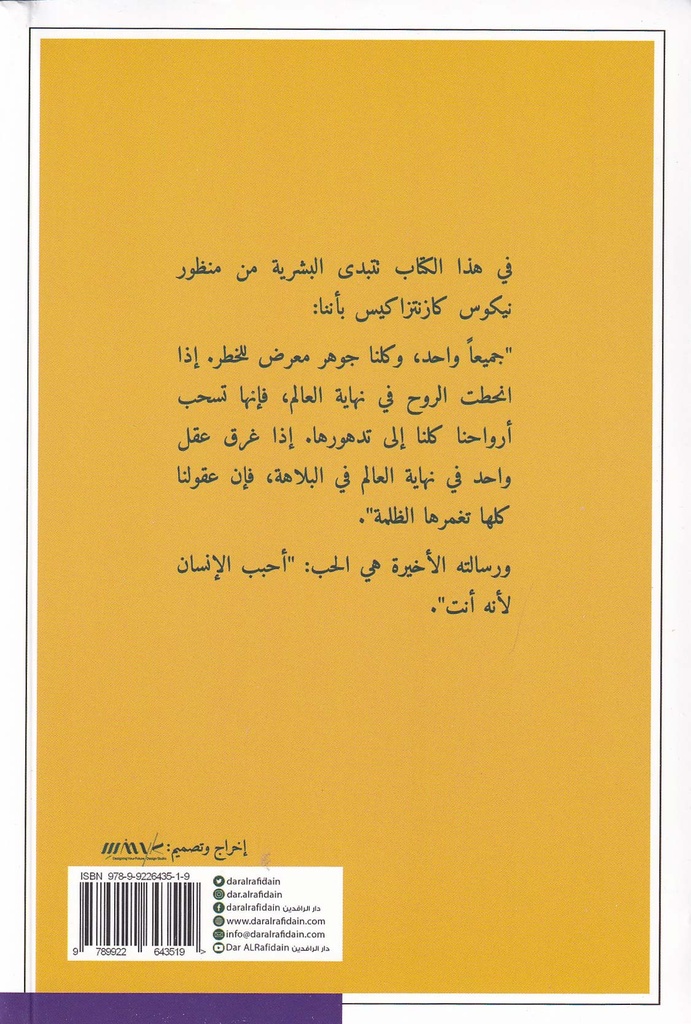 في هذا الكتاب تتبدى البشرية من منظور
نيكوس كازنتزاكيس بأننا:
"جميعاً واحد، وكلنا جوهر معرض للخطر. إذا
انحطت الروح في نهاية العالم، فإنها تسحب
أرواحنا كلنا إلى تدهورها. إذا غرق عقل
واحد في نهاية العالم في البلاهة، فإن عقولنا
كلها تغمرها الظلمة".
ورسالته الأخيرة هي الحب: "أحبب الإنسان
لأنه أنت".
إخراج وتصميم:
ISBN 978-9-9226435-1-9
9 789922 643519 >
daralrafidain
dar.alrafidain
daralrafidain دار الرافدين
www.daralrafidain.com
info@daralrafidain.com
Dar ALRafidain دار الرافدين